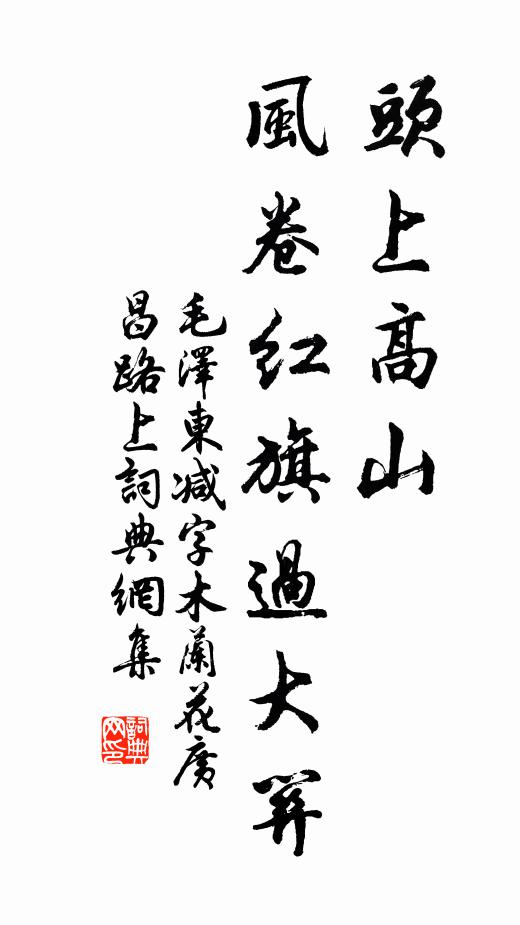 頭上高山
風卷紅旗過大關
毛澤東减字木蘭花廣
昌路上詞典網集
詞典
网印